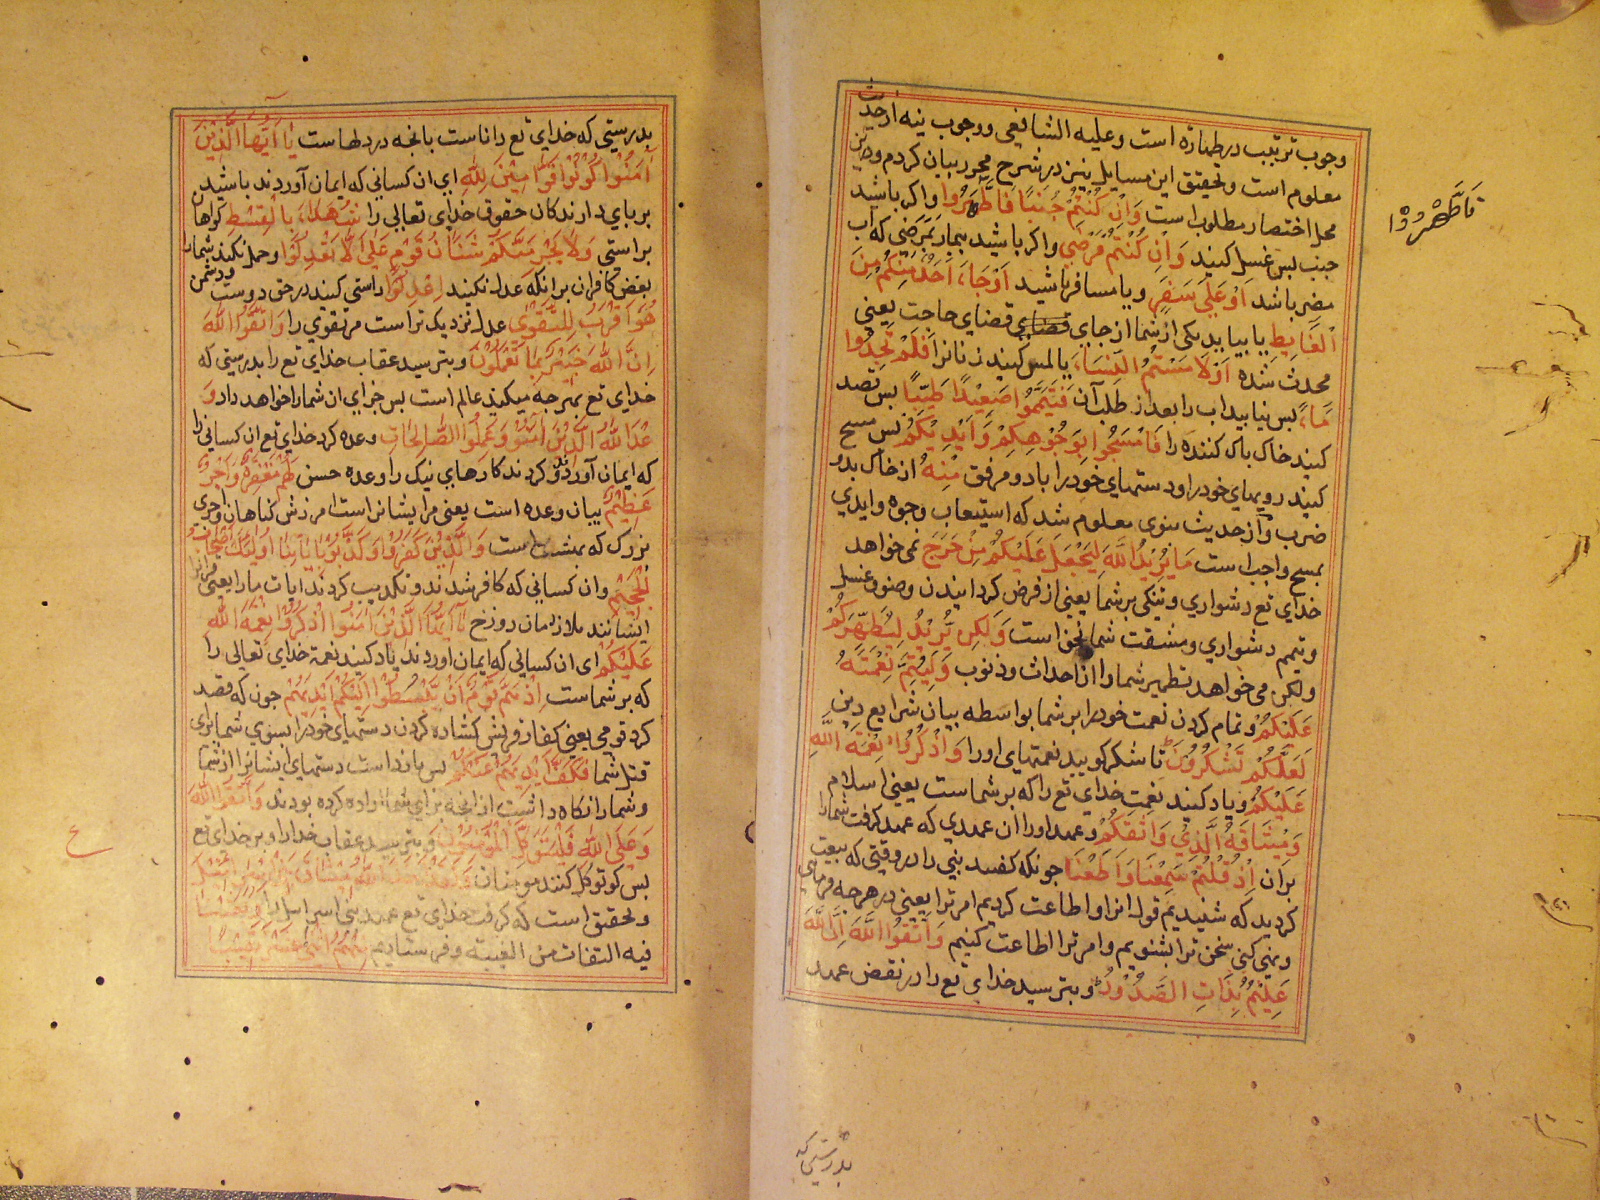 وجوب ترتیب در طهارة است وعلیه الشافعی ووجوب نیه از حدیث
معلوم است وتحقیق این مسایل نیز در شرح محرر بیان کردم ودرین
محل اختصار مطلوب است وَاِنْ كُنْتُمْ جُنُبًا فَاطَّهَّرُوا واکر باشید
جنب پس غسل کنید وَاِنْ كُنْتُمْ مَرْضَى واکر باشید بیمار بمرضی که آب
مضر باشد اَوْ عَلَى سَفَرٍ ویا مسافر باشید اَوْ جَاءَ اَحَدٌ مِنْكُمْ مِنَ
الْغَايِطِ یا بیاید یکی از شما از جای قضای حاجت یعنی
محدث شده اَوْ لَامَسْتُمُ النِّسَاءَ یا لمس کنید زنانرا فَلَمْ تَجِدُوا
مَاءً پس نیابید اب را بعد از طلب آن فَتَيَمَّمُوا صَعِيْدًا طَيِّبًا پس قصد
کنید خاک پاک کننده را فَامْسَحُوا بِوُجُوْهِكُمْ وَاَيْدِيْكُمْ پس مسح
کنید رویهای خود را ودستهای خود را بادو مرفق مِنْهُ از خاک بدو
ضرب واز حدیث نبوی معلوم شد که استیعاب وجوه وایدی
بمسح واجب است مَا يُرِيْدُ اللَّهُ لِيَجْعَلَ عَلَيْكُمْ مِنْ حَرَجٍ نمی خواهد
خدای تع دشواری وتنکی بر شما یعنی از فرض کردانیدن وضو وغسل
وتیمم دشواری ومشقت شما نخواست وَلَكِنْ يُرِيْدُ لِيُطَهِّرَكُمْ
ولکن می خواهد تطهیر شما را از احداث وذنوب وَلِيُتِمَّ نِعْمَتَهُ
عَلَيْكُمْ وتمام کردن نعمت خود را بر شما بواسطه بیان شرایع دین
لَعَلَّكُمْ تَشْكُرُوْنَ تا شکر کویید نعمتهای اورا وَاذْكُرُوا نِعْمَةَ اللَّهِ
عَلَيْكُمْ ویاد کنید نعمت خدای تع را که بر شماست یعنی اسلام
وَمِيْثَاقَهُ الَّذِيْ وَاثَقَكُمْ وعهد اورا ان عهدی که عهد کرفت شمارا
بران اِذْ قُلْتُمْ سَمِعْنَا وَاَطَعْنَا جونکه کفتید نبی را در وقتی که بیعت
کردید که شنیدیم قول انرا واطاعت کردیم امر ترا یعنی در هرجه فرمای
ونهی کنی سخن ترا بشنویم وامر ترا اطاعت کنیم وَاتَّقُوا اللَّهَ اِنَّ اللَّهَ
عَلِيْمٌ بِذَاتِ الصُّدُوْرِ وبترسید خدای تع را در نقض عهد
فَاطَّهَّرُوْا
بدرستی که
بدرستی که خدای تع داناست بانجه در دلهاست يَا اَيُّهَا الَّذِيْنَ
اٰمَنُوْا كُوْنُوْا قَوَّامِيْنَ لِلّٰهِ ای ان کسانی که ایمان آوردند باشید
بر پای دارندکان حقوق خدای تعالی را شُهَدَاءَ بِالْقِسْطِ کواهان
براستی وَلَا يَجْرِمَنَّكُمْ شَنَآنُ قَوْمٍ عَلَى اَلَّا تَعْدِلُوا وحمل نکند شمارا
بغض کافران برانکه عدل نکنید اِعْدِلُوْا راستی کنید در حق دوست ودشمن
هُوَ اَقْرَبُ لِلتَّقْوَى عدل نزدیک تراست مر تقوی را وَاتَّقُوا اللّٰهَ
اِنَّ اللّٰهَ خَبِيْرٌ بِمَا تَعْمَلُوْنَ وبترسید عقاب خدای تع را بدرستی که
خدای تع بهرجه میکنید عالم است پس جزای ان شمارا خواهد داد وَ
عَدَ اللّٰهُ الَّذِيْنَ اٰمَنُوْا وَعَمِلُوا الصَّالِحَاتِ وعده کرد خدای تع ان کسانی را
که ایمان آوردند وکردند کارهای نیک را وعده حسن لَهُمْ مَغْفِرَةٌ وَاَجْرٌ
عَظِيْمٌ بیان وعده است یعنی مر ایشانراست امرزش کناهان واجری
بزرک که بهشت است وَالَّذِيْنَ كَفَرُوْا وَكَذَّبُوْا بِاٰيَاتِنَا اُولٰئِكَ اَصْحَابُ
الْجَحِيْمِ وان کسانی که کافر شدند وتکذیب کردند ایات مارا یعنی قرانرا
ایشانند ملازمان دوزخ يَا اَيُّهَا الَّذِيْنَ اٰمَنُوا اذْكُرُوْا نِعْمَةَ اللّٰهِ
عَلَيْكُمْ ای ان کسانی که ایمان اوردند یاد کنید نعمة خدای تعالی را
که بر شماست اِذْ هَمَّ قَوْمٌ اَنْ يَبْسُطُوْا اِلَيْكُمْ اَيْدِيَهُمْ جون که قصد
کرد قومی یعنی کفار قریش کشاده کردن دستهای خودرا بسوی شما برای
قتل شما فَكَفَّ اَيْدِيَهُمْ عَنْكُمْ پس بازداشت دستهای ایشانرا از شما
وشمارا نکاه داشت از انجه برای شما اراده کرده بودند وَاتَّقُوا اللّٰهَ
وَعَلَى اللّٰهِ فَلْيَتَوَكَّلِ الْمُؤْمِنُوْنَ وبترسید عقاب خدارا وبر خدای تع
پس کو توکل کنند مومنان وَلَقَدْ اَخَذَ اللّٰهُ مِيْثَاقَ بَنِيْ اِسْرَائِيْلَ
وتحقیق است که کرفت خدای تع عهد بنی اسرائیل را وَبَعَثْنَا
فیه التفات من الغیبة وفرستادیم مِنْهُمُ اثْنَيْ عَشَرَ نَقِيْبًا
ع